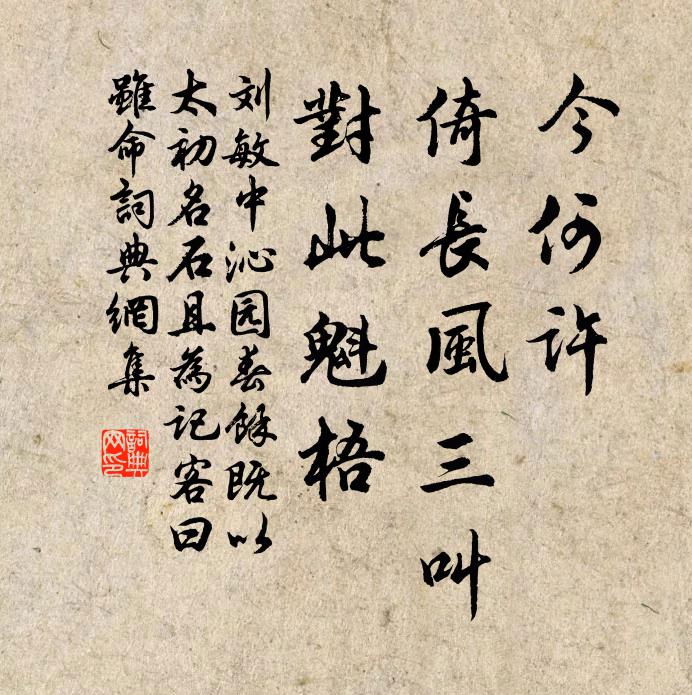 今何许
倚長風三叫
對此魁梧
刘敏中沁园春馀既以
太初名石且為記客曰
雖命詞典網集
詞典
网印